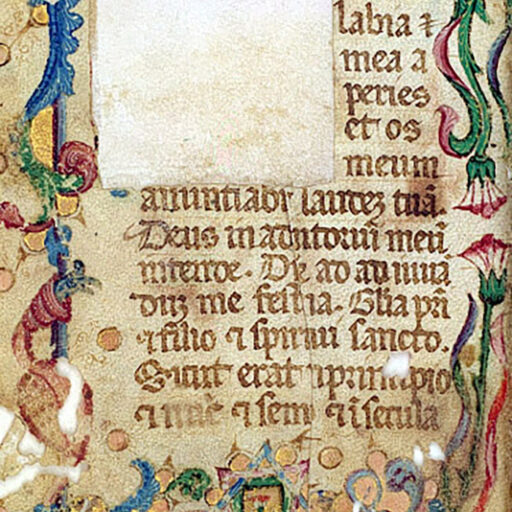 labia ⁊
mea a
peries
et os
meum
anuntiabt laudez tuā.
Deus in adiutoriū meū
intende. Dñe ad adiuuā
duz me festina. Glia pri
⁊ filio ⁊ spiritui sancto.
Sicut erat in principio
⁊ nūc ⁊ semp ⁊ ī secula